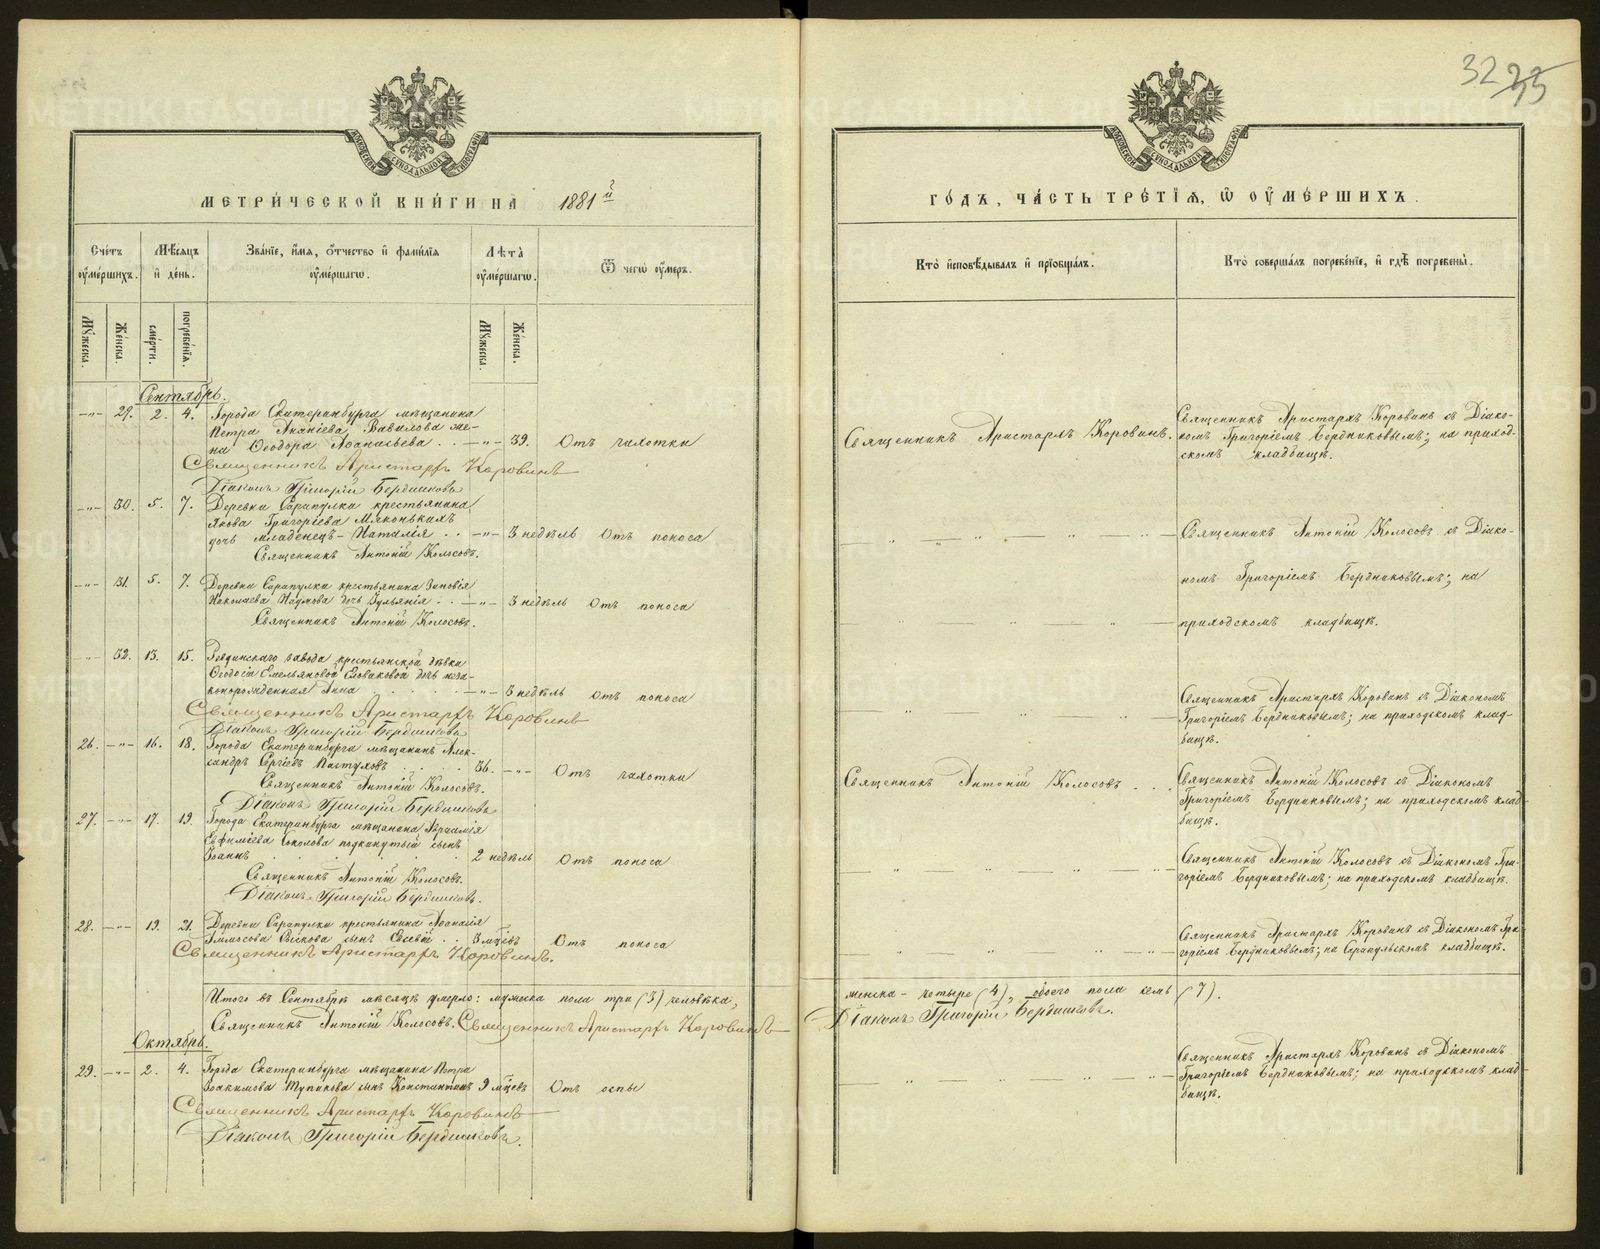 32 35
МЕТРИЧЕСКОЙ КНИГИ НА 1881й
Счетъ оумершихъ.
Мѣсяцъ и день.
Званіе, имя, отчество и фамилія оумершагѡ.
Лѣта оумершагѡ.
Ѿ чегѡ оумеръ.
Мужеска.
Женска.
смерти.
погребенія.
Мужеска.
Женска.
Сентябрь.
-"- 29. 2. 4. Города Екатеринбурга мѣщанина
Петра Ананіева Вавилова же-
на Ѳеодора Аѳанасьева . . -"- 39. Отъ чахотки
Священникъ Аристархъ Коровинъ
Діаконъ Григорій Бердниковъ
-"- 30. 5. 7. Деревни Сарапулки крестьянина
Якова Григоріева Мяконькихъ
дочь младенецъ - Наталія . . -"- 3 недѣль Отъ поноса
Священникъ Антоній Колосовъ.
-"- 31. 5. 7. Деревни Сарапулки крестьянина Зиновія
Николаева Наумова дочь Іульянія . . -"- 3 недѣль Отъ поноса
Священникъ Антоній Колосовъ.
-"- 32. 13. 15. завода крестьянской дѣвки
Ѳеодосіи Емельяновой дочь неза-
коннорожденная Анна . . . . -"- 3 недѣль Отъ поноса
Священникъ Аристархъ Коровинъ
Діаконъ Григорій Бердниковъ
26. -"- 16. 18. Города Екатеринбурга мѣщанинъ Алек-
сандръ Сергіевъ Пастуховъ . . . . 36. -"- Отъ чахотки
Священникъ Антоній Колосовъ.
Діаконъ Григорій Бердниковъ
27. -"- 17. 19. Города Екатеринбурга мѣщанина Авраамія
Евфиміева Соколова подкинутый сынъ
Іоаннъ . . . . . . 2 недѣль Отъ поноса
Священникъ Антоній Колосовъ.
Діаконъ Григорій Бердниковъ.
28. -"- 19. 21. Деревни Сарапулки крестьянина Аѳанасія
сынъ Евсевій . . 3 мѣсцъ Отъ поноса
Священникъ Аристархъ Коровинъ.
Итого въ Сентябрѣ мѣсяцѣ умерло: мужеска пола три (3) человѣка,
Священникъ Антоній Колосовъ. Священникъ Аристархъ Коровинъ
Октябрь.
29. -"- 2. 4. Города Екатеринбурга мѣщанина Петра
Іоакимова Тупикова сынъ Константинъ 9 мѣсцевъ Отъ оспы
Священникъ Аристархъ Коровинъ
Діаконъ Григорій Бердниковъ.
ГОДЪ, ЧАСТЬ ТРЕТІЯ, Ѡ ОУМЕРШИХЪ.
Кто исповѣдывалъ и пріобщалъ.
Кто совершалъ погребеніе, и гдѣ погребены.
Священникъ Аристархъ Коровинъ.
Священникъ Аристархъ Коровинъ съ Діако-
номъ Григоріемъ Бердниковымъ; на приход-
скомъ кладбищѣ.
Священникъ Антоній Колосовъ съ Діако-
номъ Григоріемъ Бердниковымъ; на
приходскомъ кладбищѣ.
Священникъ Аристархъ Коровинъ съ Діакономъ
Григоріемъ Бердниковымъ; на приходскомъ клад-
бищѣ.
Священникъ Антоній Колосовъ . . .
Священникъ Антоній Колосовъ съ Діакономъ
Григоріемъ Бердниковымъ; на приходскомъ клад-
бищѣ.
Священникъ Антоній Колосовъ съ Діакономъ Гри-
горіемъ Бердниковымъ; на приходскомъ кладбищѣ.
Священникъ Аристархъ Коровинъ съ Діакономъ Гри-
горіемъ Бердниковымъ; на Сарапульскомъ кладбищѣ.
женска - четыре (4), обоего пола семь (7).
Діаконъ Григорій Бердниковъ.
Священникъ Аристархъ Коровинъ съ Діакономъ
Григоріемъ Бердниковымъ; на приходскомъ клад-
бищѣ.